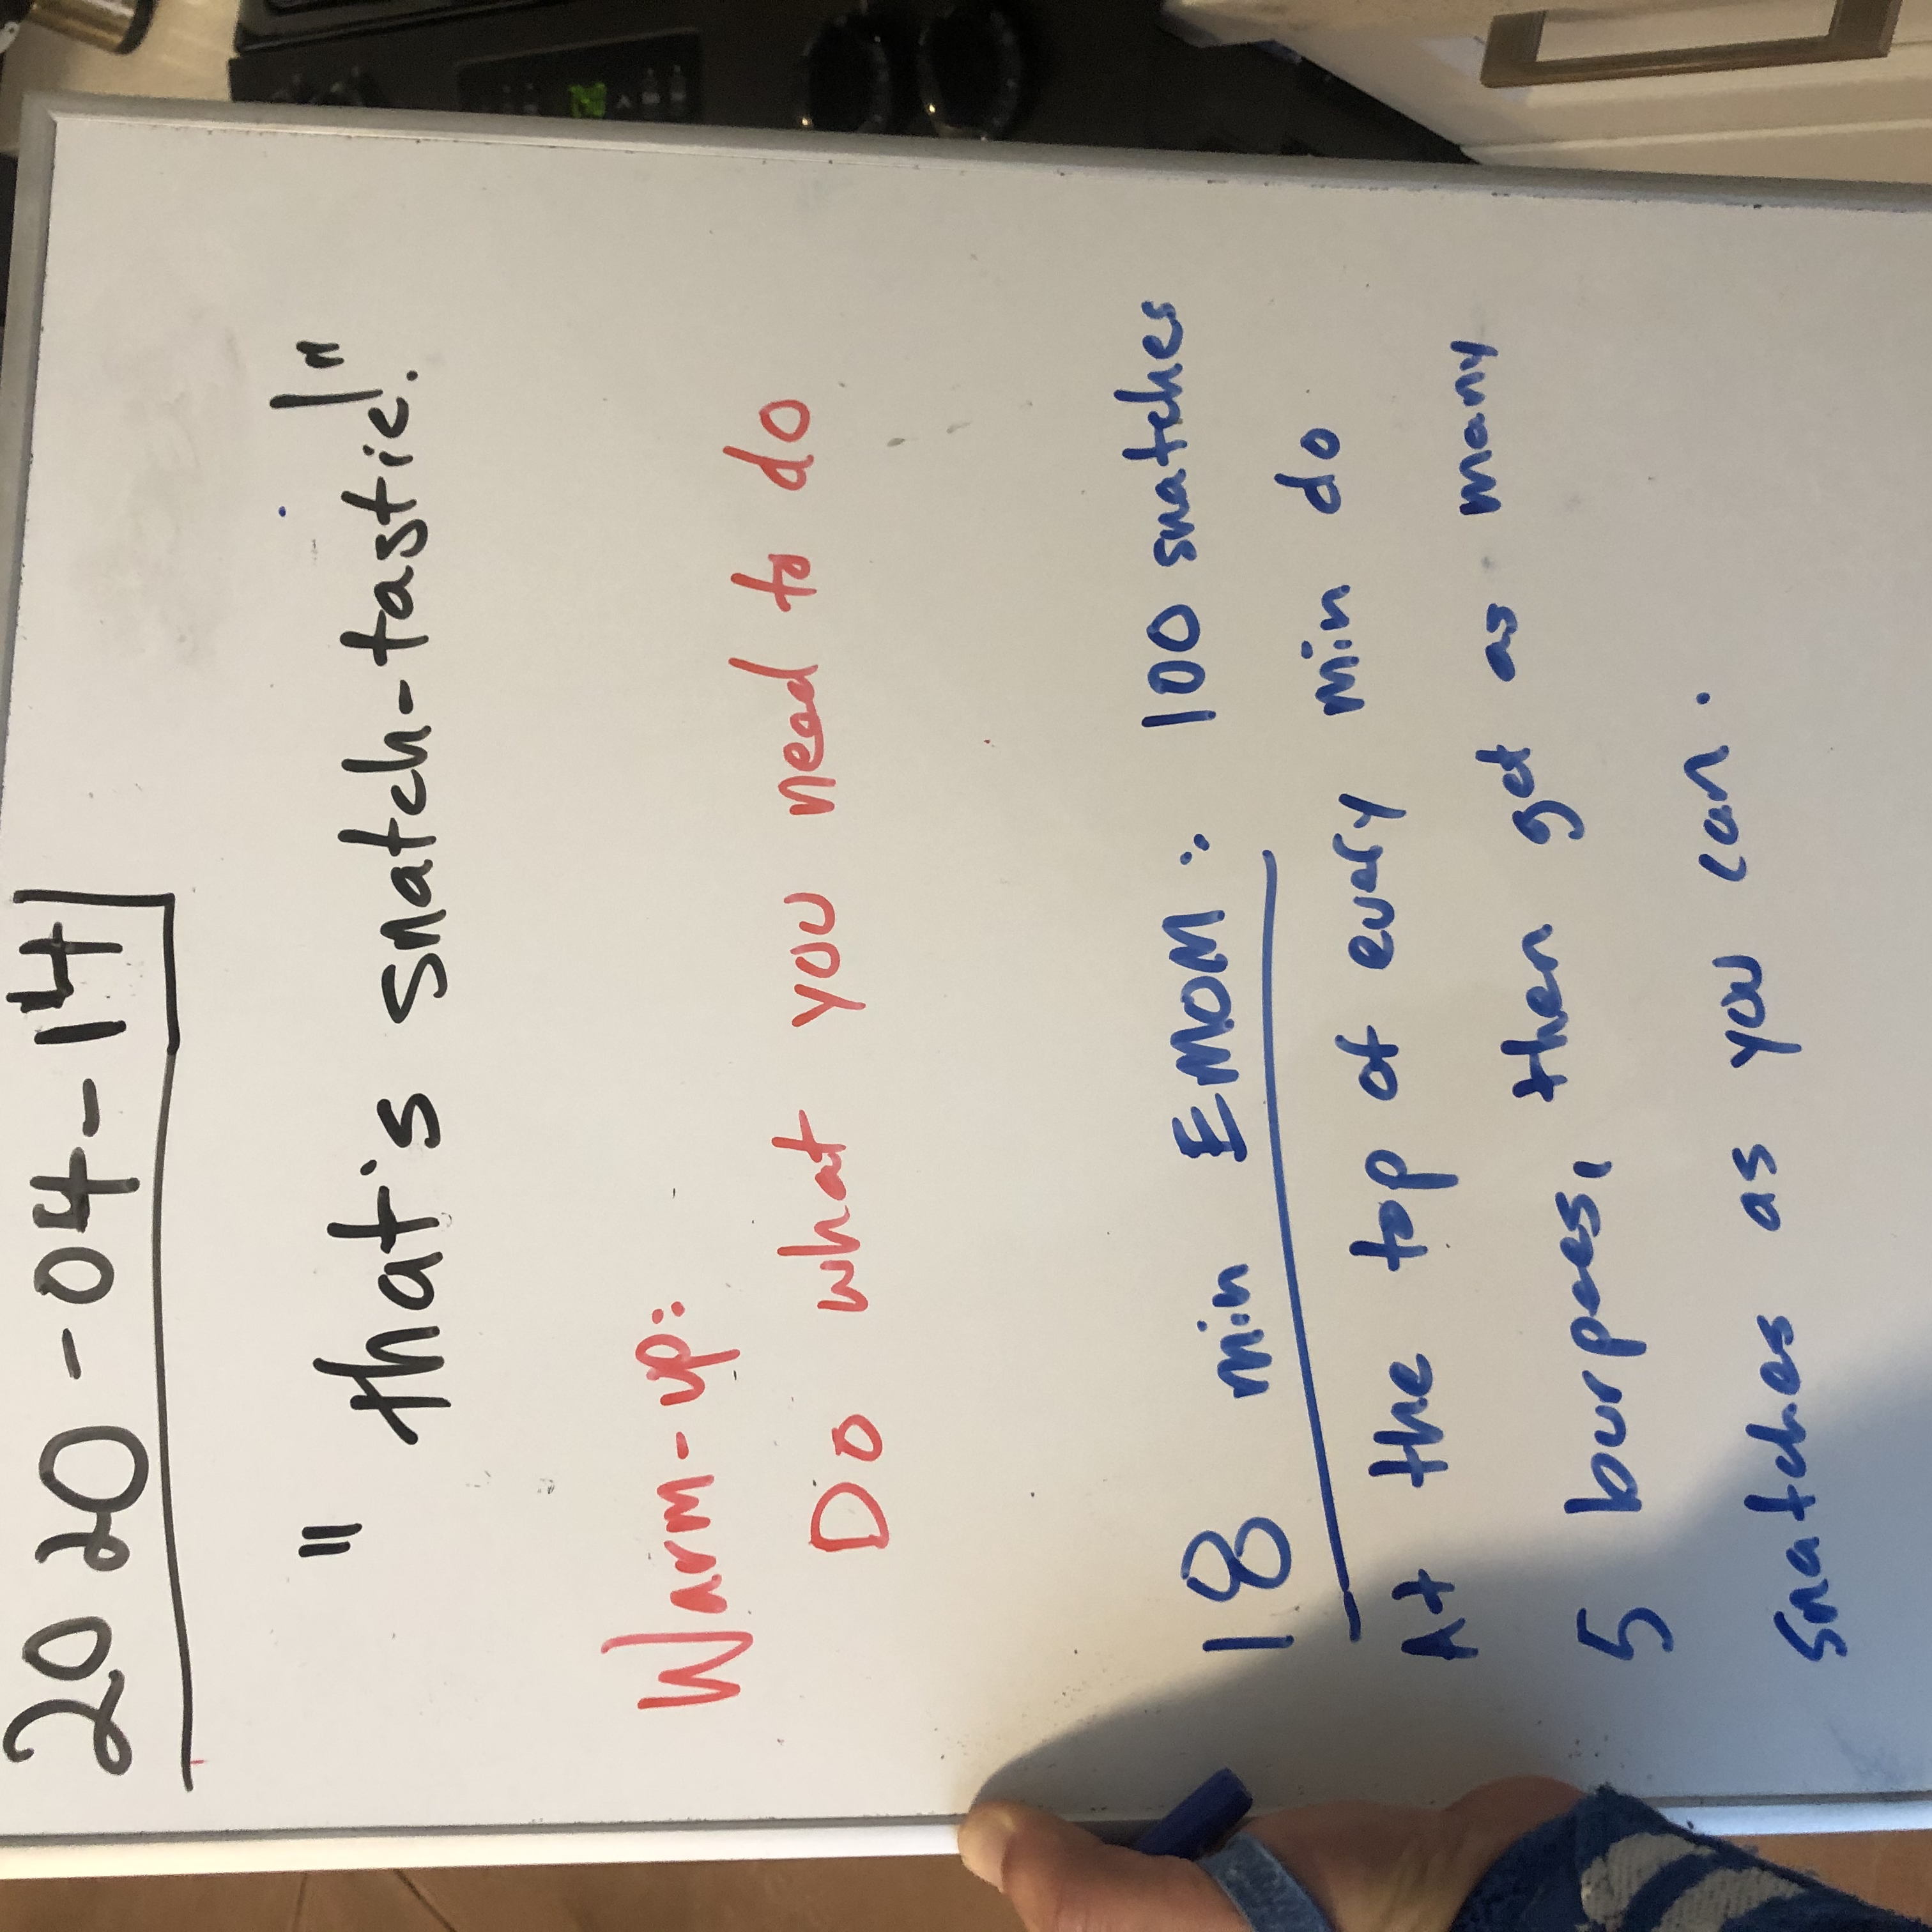 2020-04-14
"that's snatch-tastic!"
Warm-up:
Do what you need to do
18 min EMOM: 100 snatches
At the top of every min do
5 burpees, then get as many
snatches as you can.